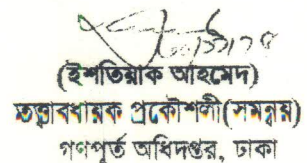 (ইশতিয়াক আহমেদ)
তত্ত্বাবধায়ক প্রকৌশলী(সমন্বয়)
গণপূর্ত অধিদপ্তর, ঢাকা